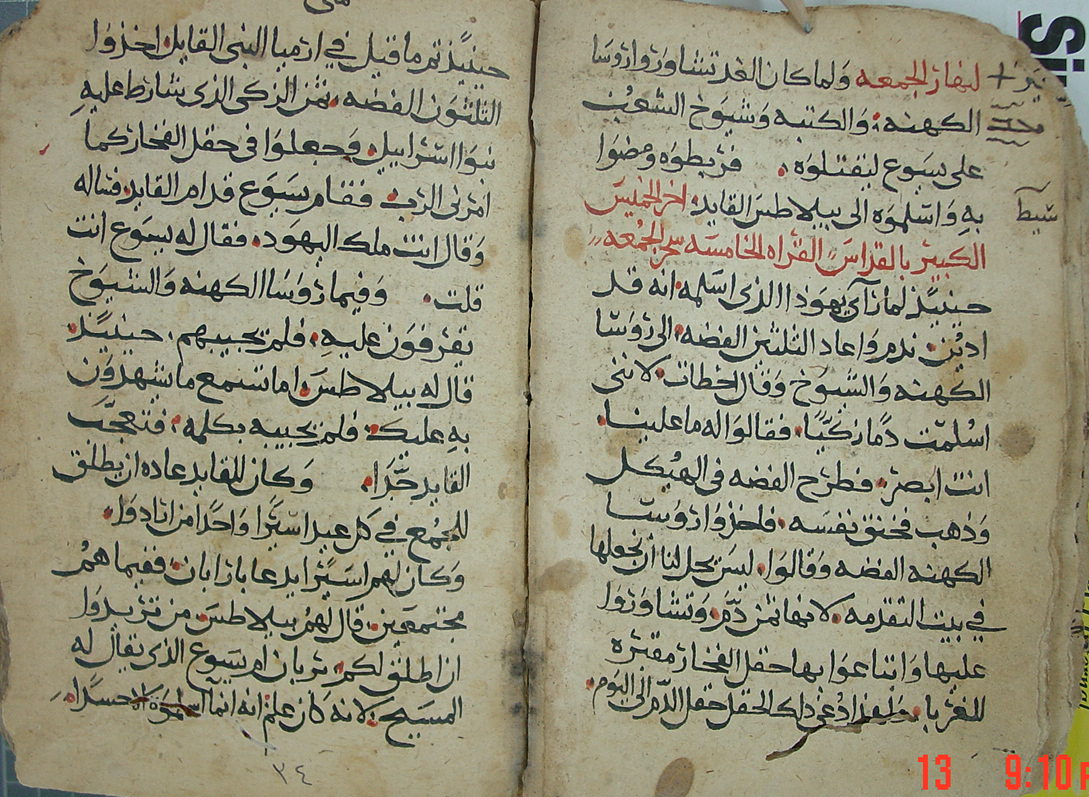 لنهار الجمعه ولما كان الغد تشاوروا روسا
الكهنه والكتبه وشيوخ الشعب
على يسوع ليقتلوه . فربطوه ومضوا
به واسلموه الى بيلاطس القايد. اخر الخميس
الكبير بالقداس القراه الخامسه سحر الجمعه
حينيذ لما راى يهوذا الذى اسلمه انه قد
ادين. ندم واعاد الثلثين الفضه. الى روسا
الكهنه والشيوخ وقال اخطات. لاننى
اسلمت دما زكيا. فقالوا له ما علينا.
انت ابصر. فطرح الفضه فى الهيكل
وذهب فخنق نفسه. فاخذوا روسا
الكهنه الفضه وقالوا. ليس يحل لنا ان نجعلها
في بيت التقدمه. لانها ثمن دم. وتشاوروا
عليها وابتاعوا بها حقل الفخار مقبره
للغربا. ادعى ذلك الحقل حقل الدم الى اليوم.
حينيذ تم ما قيل في ارميا النبى القايل. اخذوا
الثلثون الفضه. ثمن الزكى الذى شارط عليه
بنوا اسراييل. وجعلوا فى حقل الفخار كما
امرنى الرب. فقام يسوع قدام القايد. فساله
وقال انت ملك اليهود. فقال له يسوع انت
قلت. وفيما روسا الكهنه والشيوخ
يقرفون عليه. فلم يجيبهم. حينيذ
قال له بيلاطس. اما تسمع ما يشهدون
به عليك. فلم يجيبه بكلمه. فتعجب
القايد جدا. وكان للقايد عاده ان يطلق
للجمع في كل عيد اسيرا واحدا من ارادوا.
وكان لهم اسير يدعا بارابان. ففيما هم
مجتمعين. قال لهم بيلاطس. من تريدوا
ان اطلق لكم. بربان ام يسوع الذى يقال له
المسيح. لانه كان علم انه انما اسلموه حسدا.
٣٤
Si
13 9:10